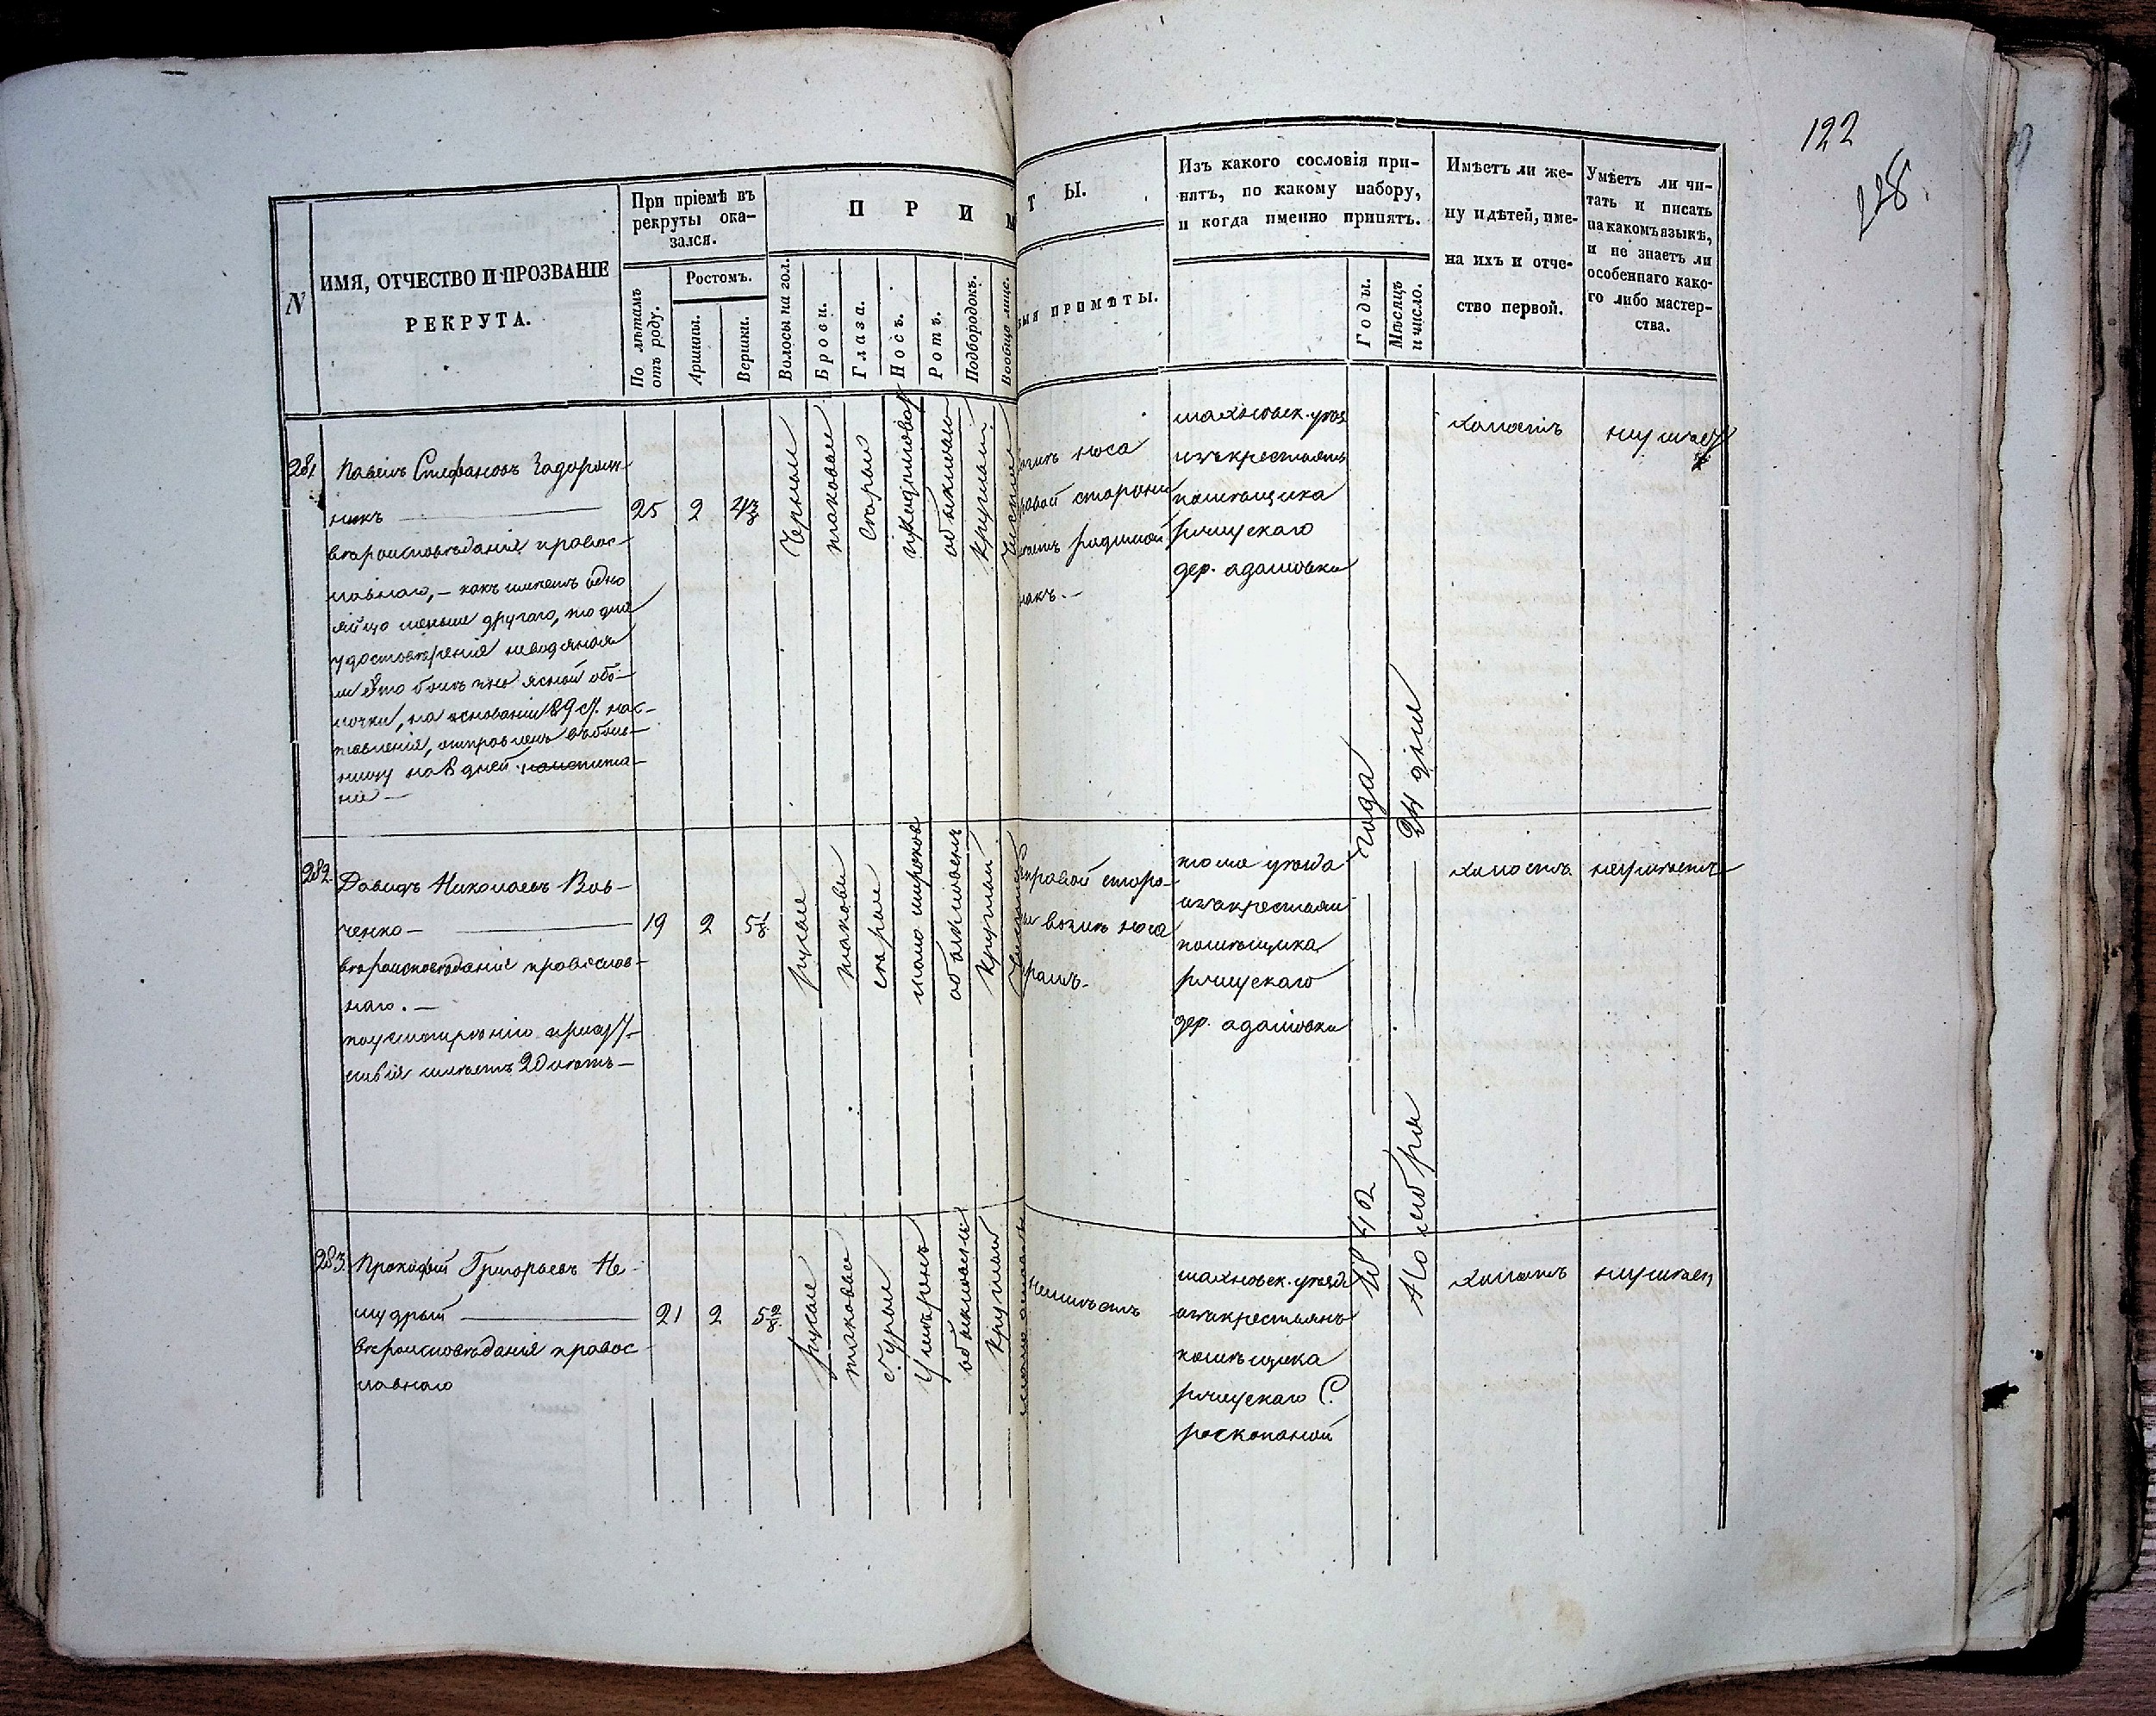 122
228.
N
ИМЯ, ОТЧЕСТВО И ПРОЗВАНІЕ
РЕКРУТА.
При пріемѣ въ
рекруты ока-
зался.
По лѣтамъ
отъ роду.
Ростомъ.
Аршины.
Вершки.
П Р И М
Волосы на гол.
Брови.
Глаза.
Носъ.
Ротъ.
Подбородокъ.
Вообще лице.
Т Ы.
ЫЯ ПРИМѢТЫ.
Изъ какого сословія при-
нятъ, по какому набору,
и когда именно принятъ.
Годы.
Мѣсяцъ
и число.
Имѣетъ ли же-
ну и дѣтей, име-
на ихъ и отче-
ство первой.
Умѣетъ ли чи-
тать и писать
на какомъ языкѣ,
и не знаетъ ли
особеннаго како-
го либо мастер-
ства.
281
Павелъ Стефановъ
никъ
вѣроисповѣданія правос-
лавнаго, — какъ имѣетъ одно
яйцо меньше другаго, то для
удостовѣренія неводяная
ли это болѣзнь ясной обо-
лочки, на основаніи 89 ст. нас-
тавленія, отправленъ въ боль-
ницу на 8 дней
25
2
4 3/8
Черные
таковые
Серые
обыкновен
Круглый
Чистое
носа
стороны
родимой
накъ. —
махновск. уезд
изъ крестьянъ
помѣщика
ржищскаго
дер. адамовки
холостъ
неумѣетъ
282.
Давидъ Николаевъ Вов-
ченко —
вѣроисповѣданія правослов-
наго. —
поусмотрѣнію присут-
ствія имѣетъ 20 лѣтъ —
19
2
5 1/8
русые
таковые
серые
мало широкой
обыкновенъ
Круглый
Чистое
правой сторо-
ны возлѣ носа
шрамъ.
того уѣзда
изъ крестьян
помѣщика
ржищскаго
дер. адамовки
холостъ
неумѣетъ
283.
Прокофій Григорьевъ Не-
мудрый
вѣроисповѣданія правос
лавнаго
21
2
5 2/8
русые
таковые
с. Гурые
Умѣренъ
обыкновенный
Круглый
Неимѣетъ
махновск. уезда
изъ крестьянъ
помѣщика
ржищскаго С.
роскопаной
1842 года
Ноября 24 дня
холостъ
неумѣет